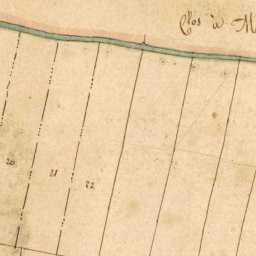 Clos de M
20
21
22